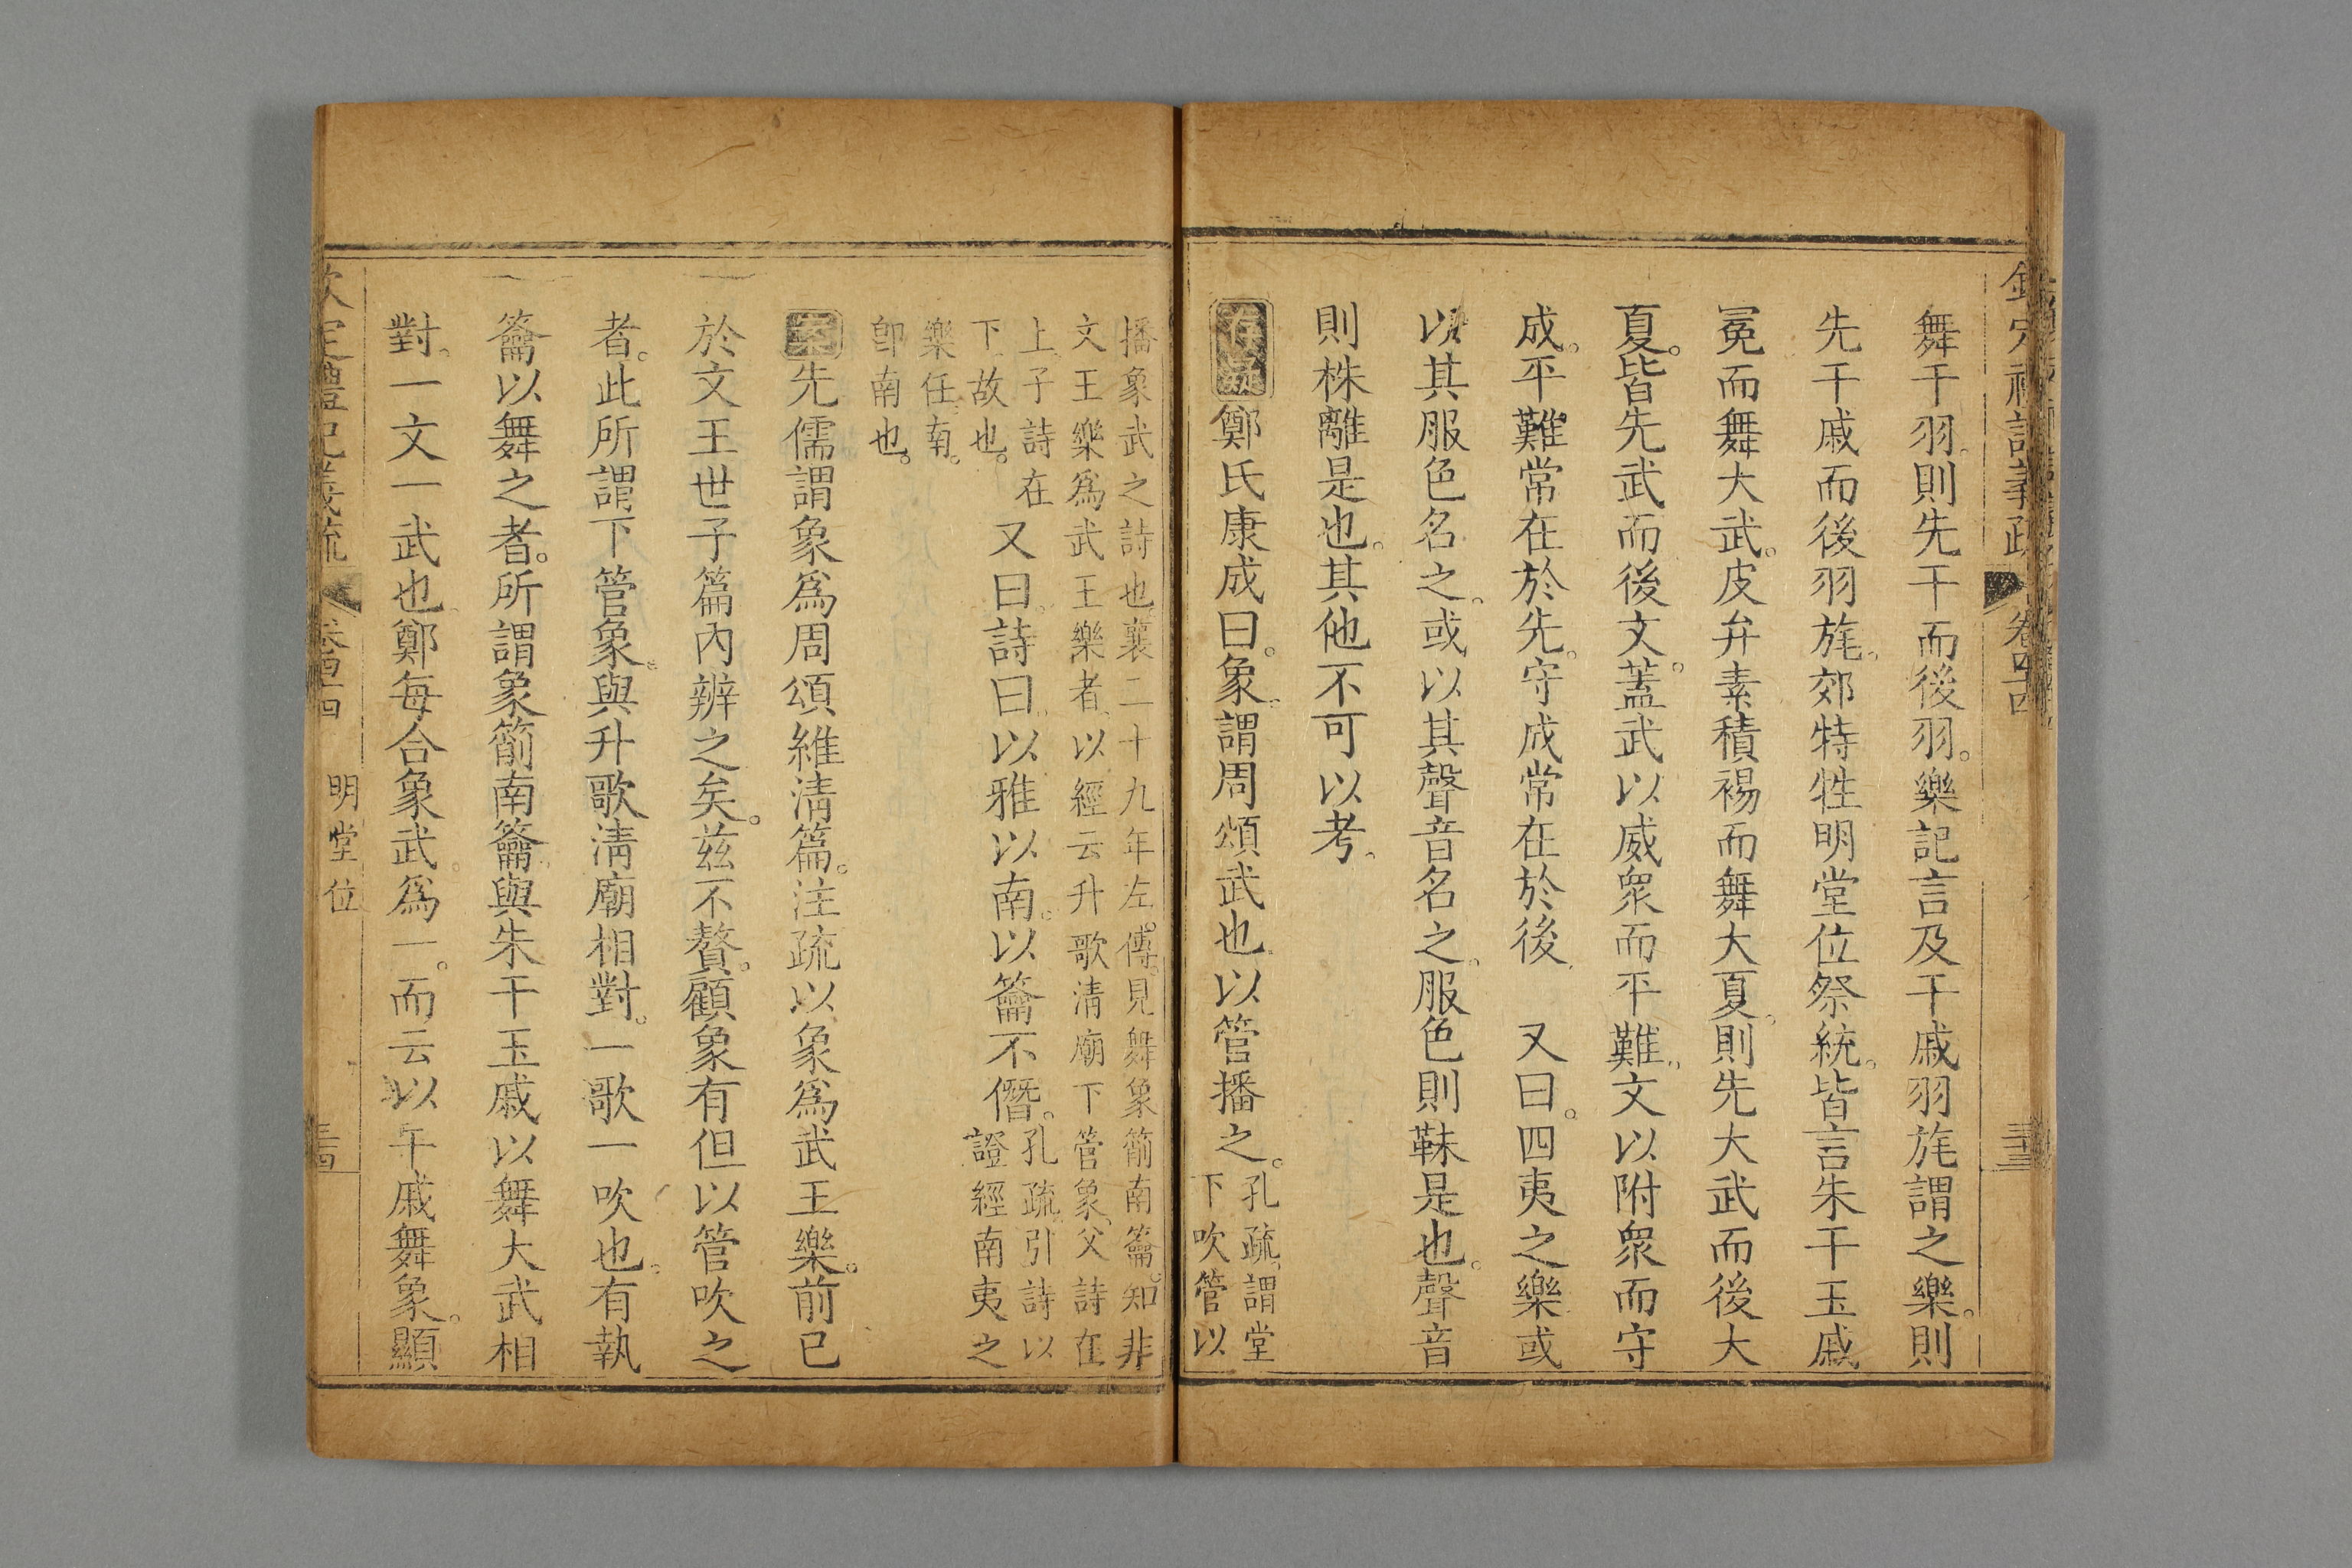 舞干羽。則先干而後羽。樂記言及干戚羽旄謂之樂。則
先干戚而後羽旄。郊特牲明堂位祭統。皆言朱干玉戚
冕而舞大武。皮弁素積裼而舞大夏。則先大武而後大
夏。皆先武而後文。蓋武以威衆而平難。文以附衆而守
成。平難常在於先。守成常在於後 又曰。四夷之樂或
以其服色名之。或以其聲音名之。服色則韎是也。聲音
則株離是也。其他不可以考。
存疑 鄭氏康成曰。象。謂周頌武也。以管播之。
孔疏。謂堂
下吹管以
播象武之詩也。襄二十九年左。傳。見舞象箾南籥。知非
文王樂爲武王樂者。以經云升歌淸廟下管象。父詩在
上。子詩在
下。故也。
又曰。詩曰。以雅以南。以籥不僭。
孔疏。引詩以
證經南夷之
樂任。南。
卽南也。
案 先儒謂象爲周頌維淸篇。注疏以象爲武王樂。前已
於文王世子篇內辨之矣。茲不贅。顧象有但以管吹之
者。此所謂下管象。與升歌淸廟相對。一歌一吹也。有執
籥以舞之者。所謂象箾南籥。與朱干玉戚以舞大武相
對。一文一武也。鄭每合象武。爲一。而云以干戚舞象。顯
欽定禮記義疏
卷四十四 明堂位
三四